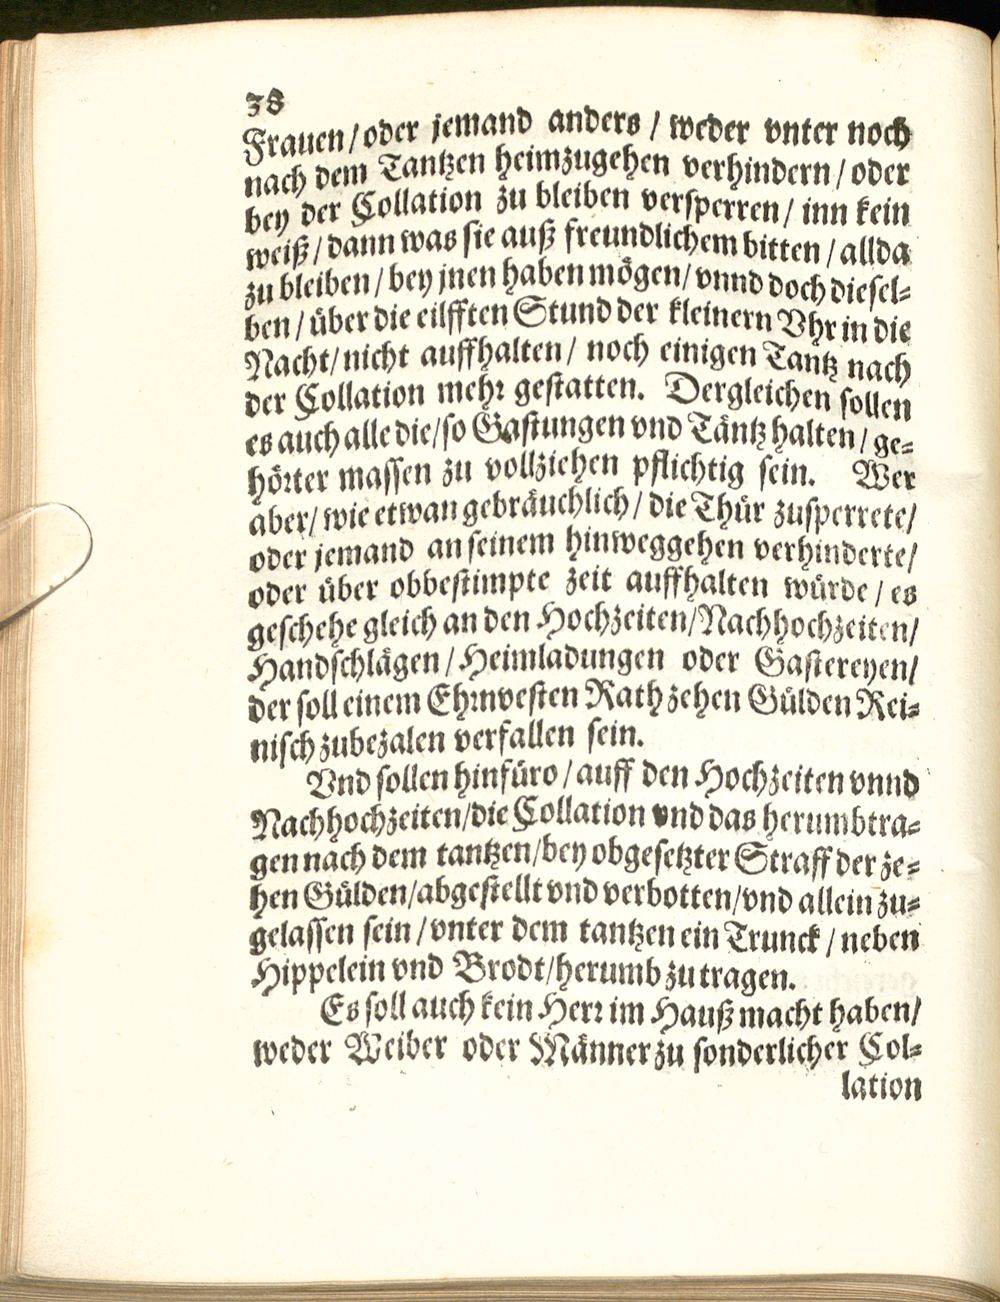 38
Frauen/oder jemand anders / weder vnter noch
nach dem Tantzen heimzugehen verhindern / oder
bey der Collation zu bleiben versperren / inn kein
weiß / dann was sie auß freundlichem bitten / allda
zu bleiben / bey jnen haben mögen/ vnnd doch diesel⸗
ben / über die eilfften Stund der kleinern Vhr in die
Nacht/ nicht auffhalten / noch einigen Tantz nach
der Collation mehr gestatten. Dergleichen sollen
es auch alle die/so Gastungen vnd Täntz halten / ge⸗
hörter massen zu vollziehen pflichtig sein. Wer
aber/ wie etwan gebräuchlich / die Thür zusperrete/
oder jemand an seinem hinweggehen verhinderte/
oder über obbestimpte zeit auffhalten würde / es
geschehe gleich an den Hochzeiten/Nachhochzeiten/
Handschlägen / Heimladungen oder Gastereyen/
der soll einem Ehrnvesten Rath zehen Gülden Rei⸗
nisch zubezalen verfallen sein.
Vnd sollen hinfüro / auff den Hochzeiten vnnd
Nachhochzeiten/die Collation vnd das herumbtra⸗
gen nach dem tantzen/bey obgesetzter Straff der ze⸗
hen Gülden/abgestellt vnd verbotten/vnd allein zu⸗
gelassen sein / vnter dem tantzen ein Trunck / neben
Hippelein vnd Brodt/herumb zu tragen.
Es soll auch kein Herr im Hauß macht haben/
weder Weiber oder Männer zu sonderlicher Col⸗
lation